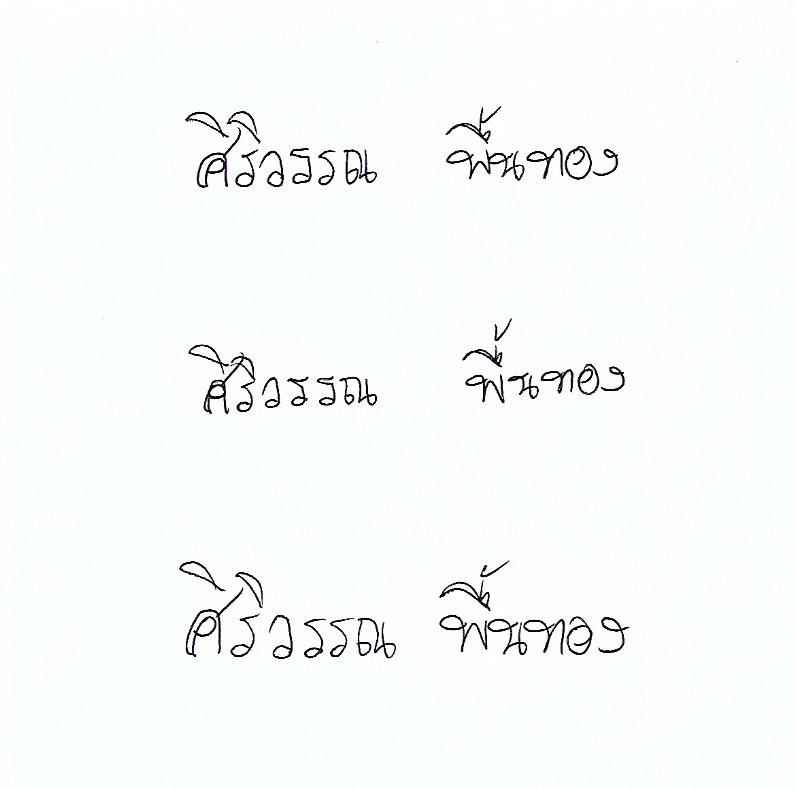 ศิริวรรณ พื้นทอง
ศิริวรรณ พื้นทอง
ศิริวรรณ พื้นทอง